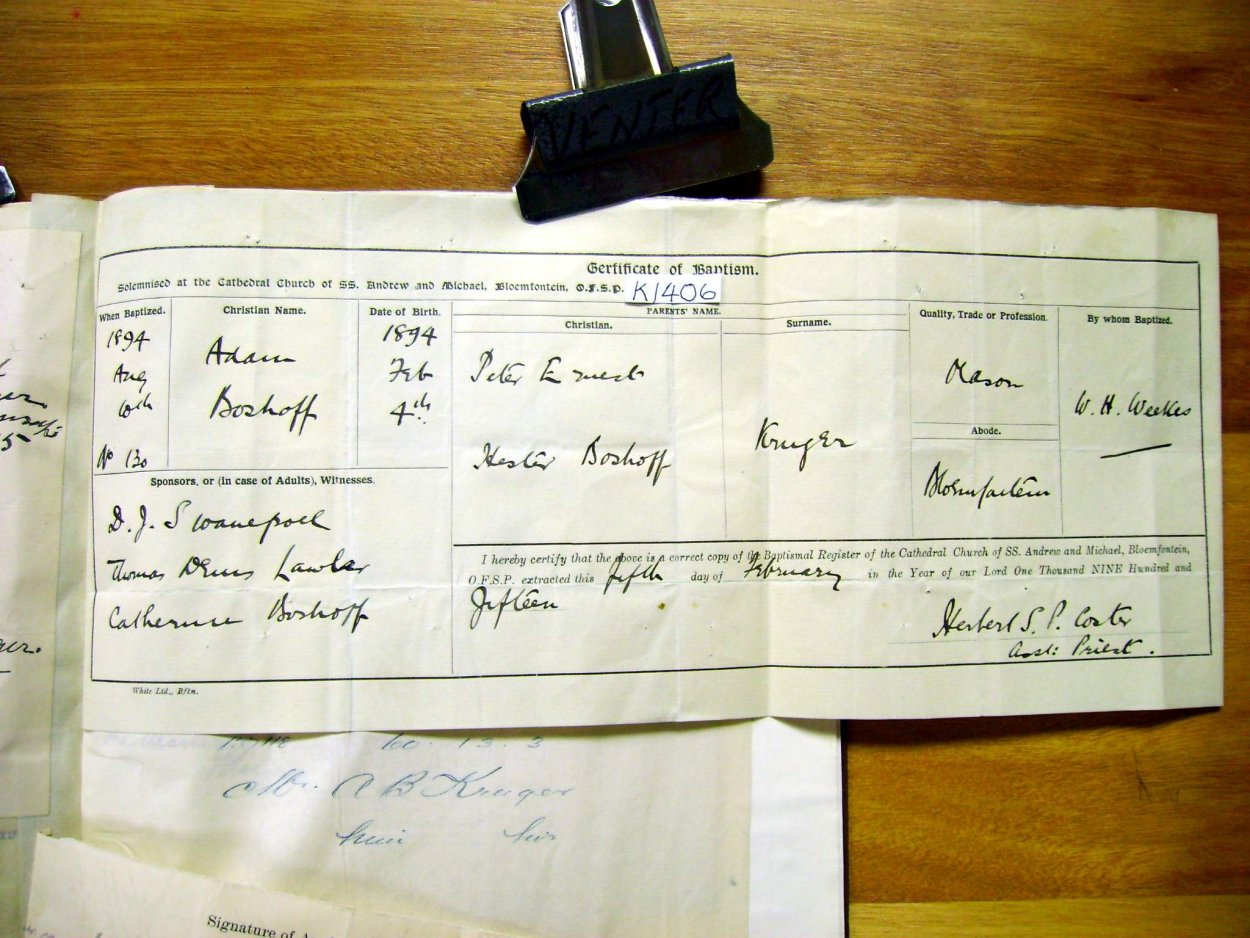 VENTER
Certificate of Baptism.
Solemnised at the Cathedral Church of SS. Andrew and Michael, Bloemfontein, O.F.S.P.
K1406
When Baptized.
1894
Aug
No 130
Christian Name.
Adam
Boshoff
Date of Birth.
1894
Feb
4th
PARENTS' NAME.
Christian.
Peter Ernest
Hester Boshoff
Surname.
Kruger
Quality, Trade or Profession.
Mason
Abode.
Bloemfontein
By whom Baptized.
W. H. Weekes
Sponsors, or (in case of Adults), Witnesses.
D. J. Swanepoel
Thomas Denis Lawler
Catherine Boshoff
I hereby certify that the above is a correct copy of the Baptismal Register of the Cathedral Church of SS. Andrew and Michael, Bloemfontein,
O.F.S.P. extracted this fifth day of February in the Year of our Lord One Thousand NINE Hundred and
Fifteen
Herbert S. P. Coster
Asst: Priest.
White Ltd., Bftn.
Mr. A B Kruger
Signature of